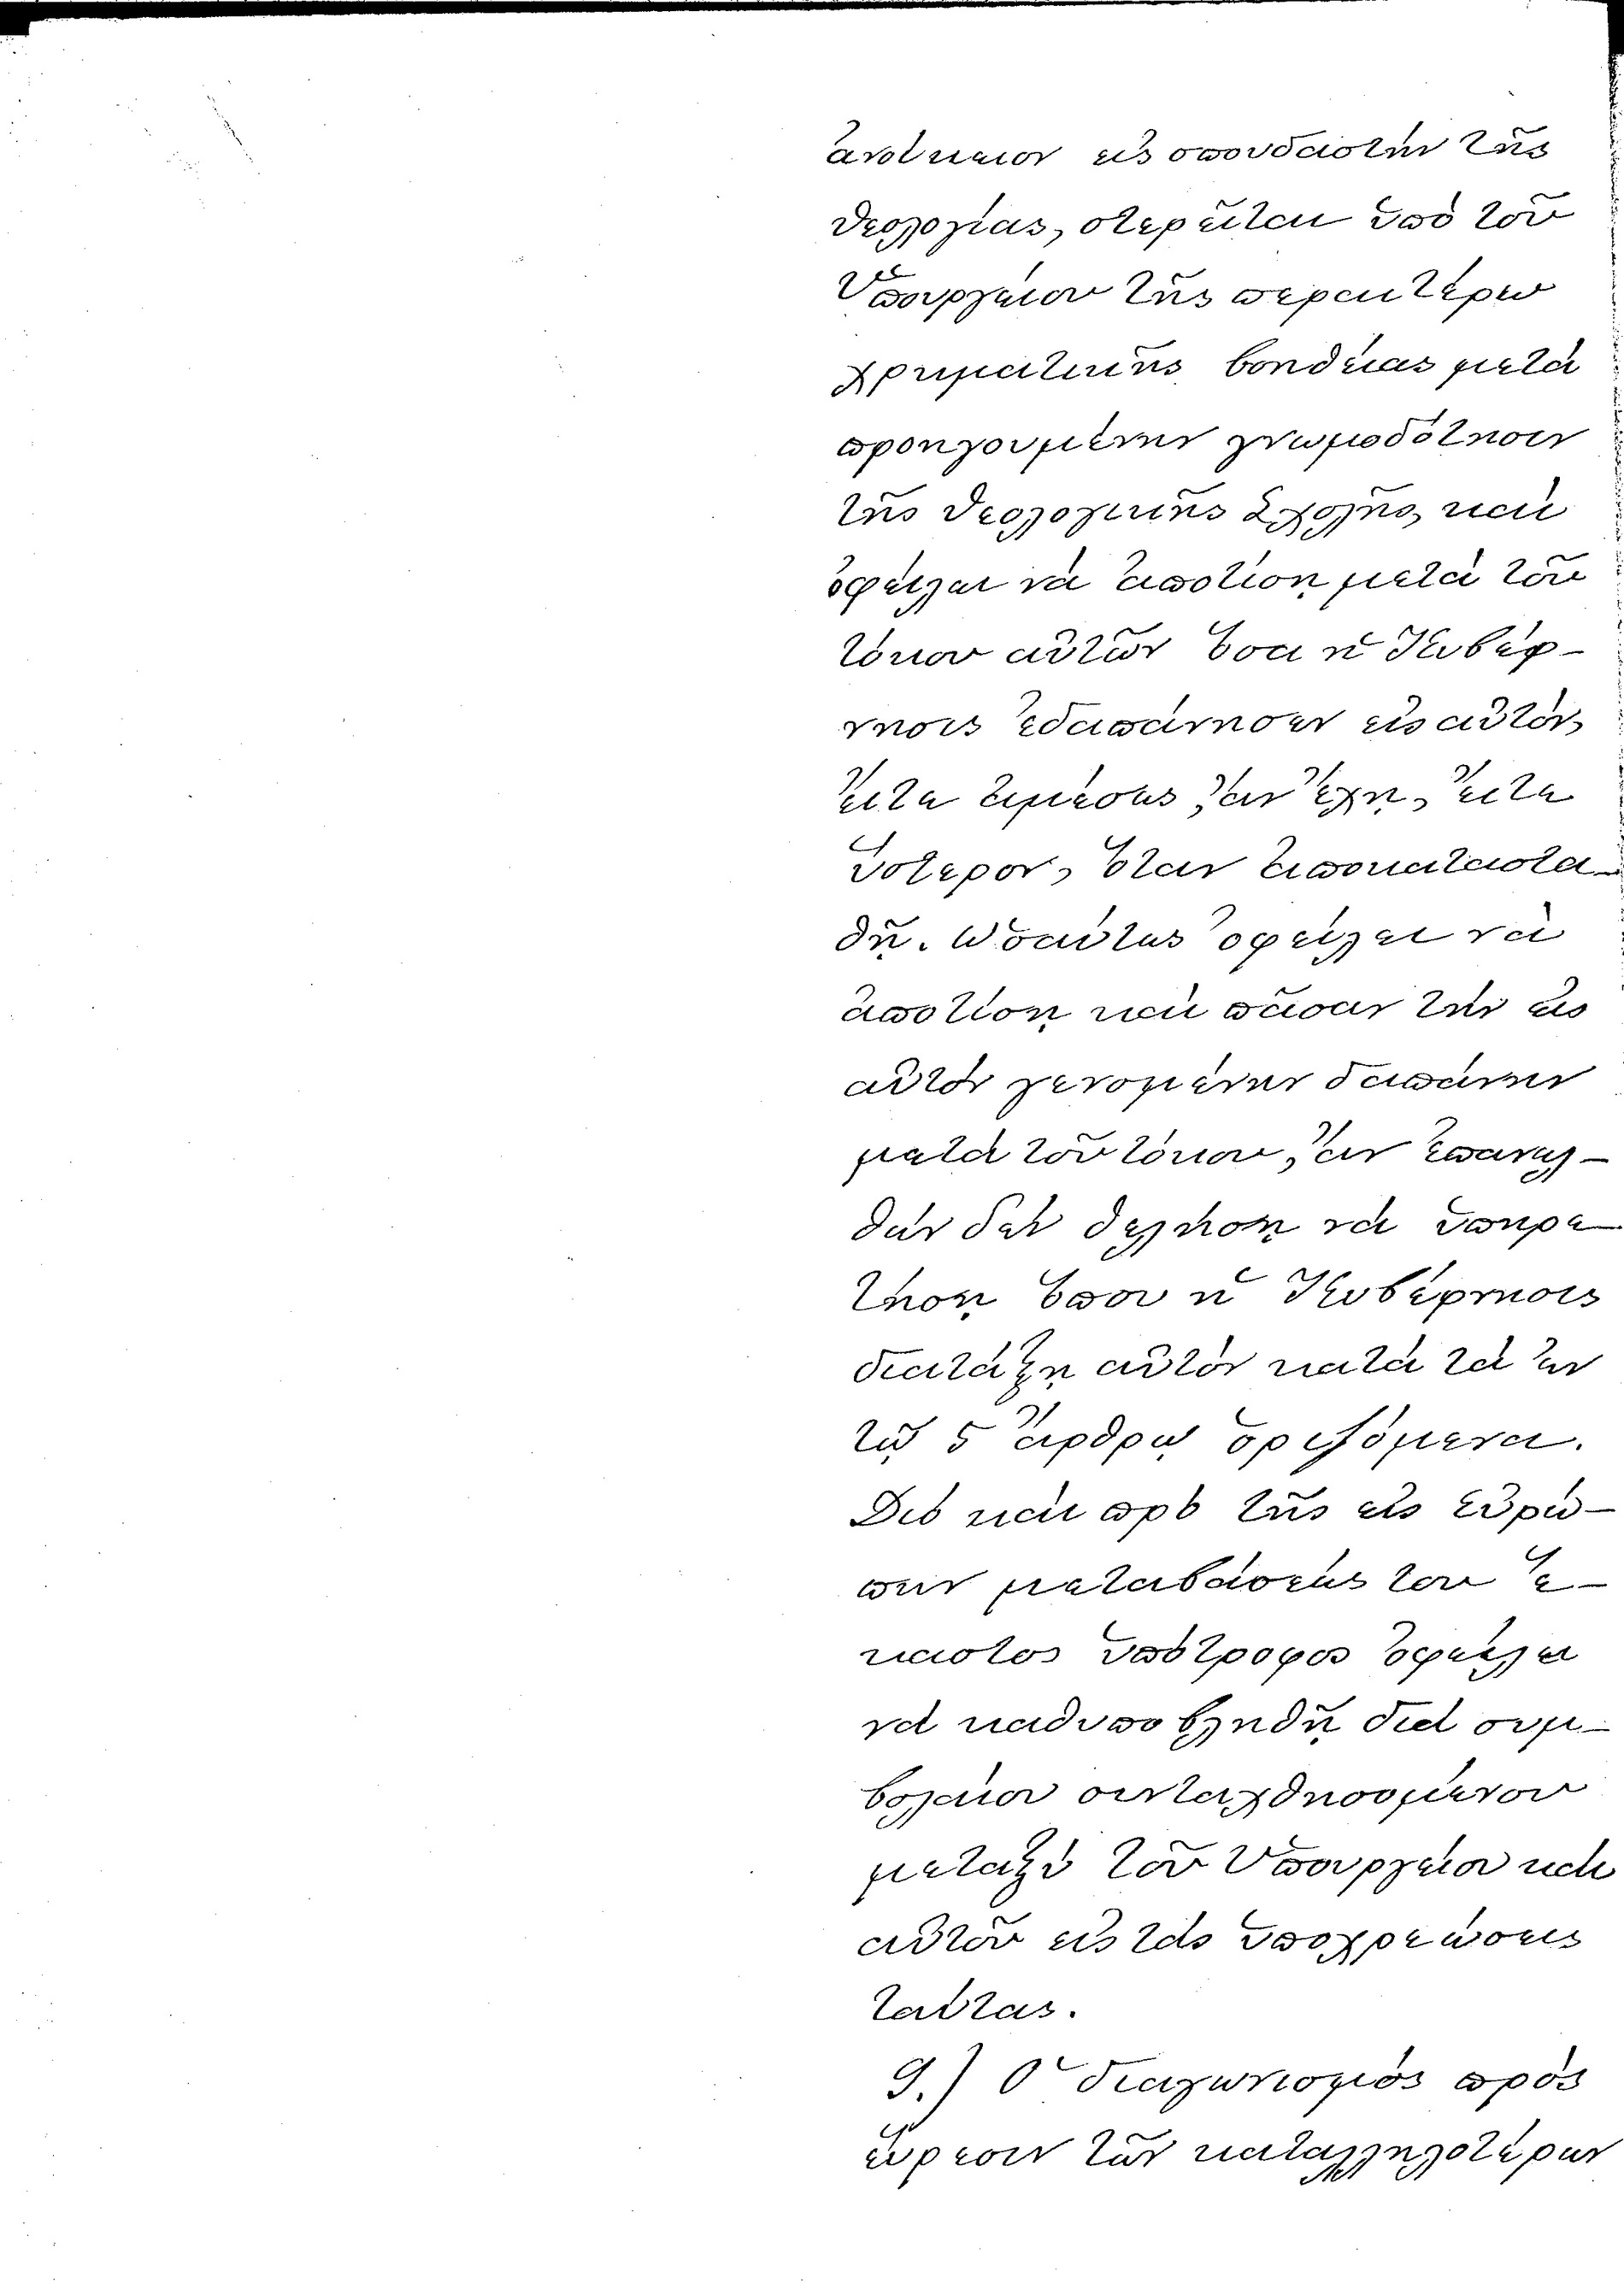 ἀνοίκειον εἰς σπουδαστὴν τῆς
θεολογίας, στερεῖται ὑπὸ τοῦ
Ὑπουργείου τῆς περαιτέρω
χρηματικῆς βοηθείας μετὰ
προηγουμένην γνωμοδότησιν
τῆς θεολογικῆς Σχολῆς, καὶ
ὀφείλει νὰ ἀποτίσῃ μετὰ τοῦ
τόκου αὐτῶν ὅσα ἡ Κυβέρ-
νησις ἐδαπάνησεν εἰς αὐτόν,
εἴτε ἀμέσως, ἂν ἔχῃ, εἴτε
ὕστερον, ὅταν ἀποκαταστα-
θῇ. Ὡσαύτως ὀφείλει νὰ
ἀποτίσῃ καὶ πᾶσαν τὴν εἰς
αὐτὸν γενομένην δαπάνην
μετὰ τοῦ τόκου, ἂν ἐπανελ-
θὼν δὲν θελήσῃ νὰ ὑπηρε-
τήσῃ ὅπου ἡ Κυβέρνησις
διατάξῃ αὐτὸν κατὰ τὰ ἐν
τῷ 5 ἄρθρῳ ὁριζόμενα.
Διὸ καὶ πρὸ τῆς εἰς Εὐρώ-
πην μεταβάσεώς του ἕ-
καστος ὑπότροφος ὀφείλει
νὰ καθυποβληθῇ διὰ συμ-
βολαίου συνταχθησομένου
μεταξὺ τοῦ Ὑπουργείου καὶ
αὐτοῦ εἰς τὰς ὑποχρεώσεις
ταύτας.
9.) Ὁ διαγωνισμὸς πρὸς
εὕρεσιν τῶν καταλληλοτέρων